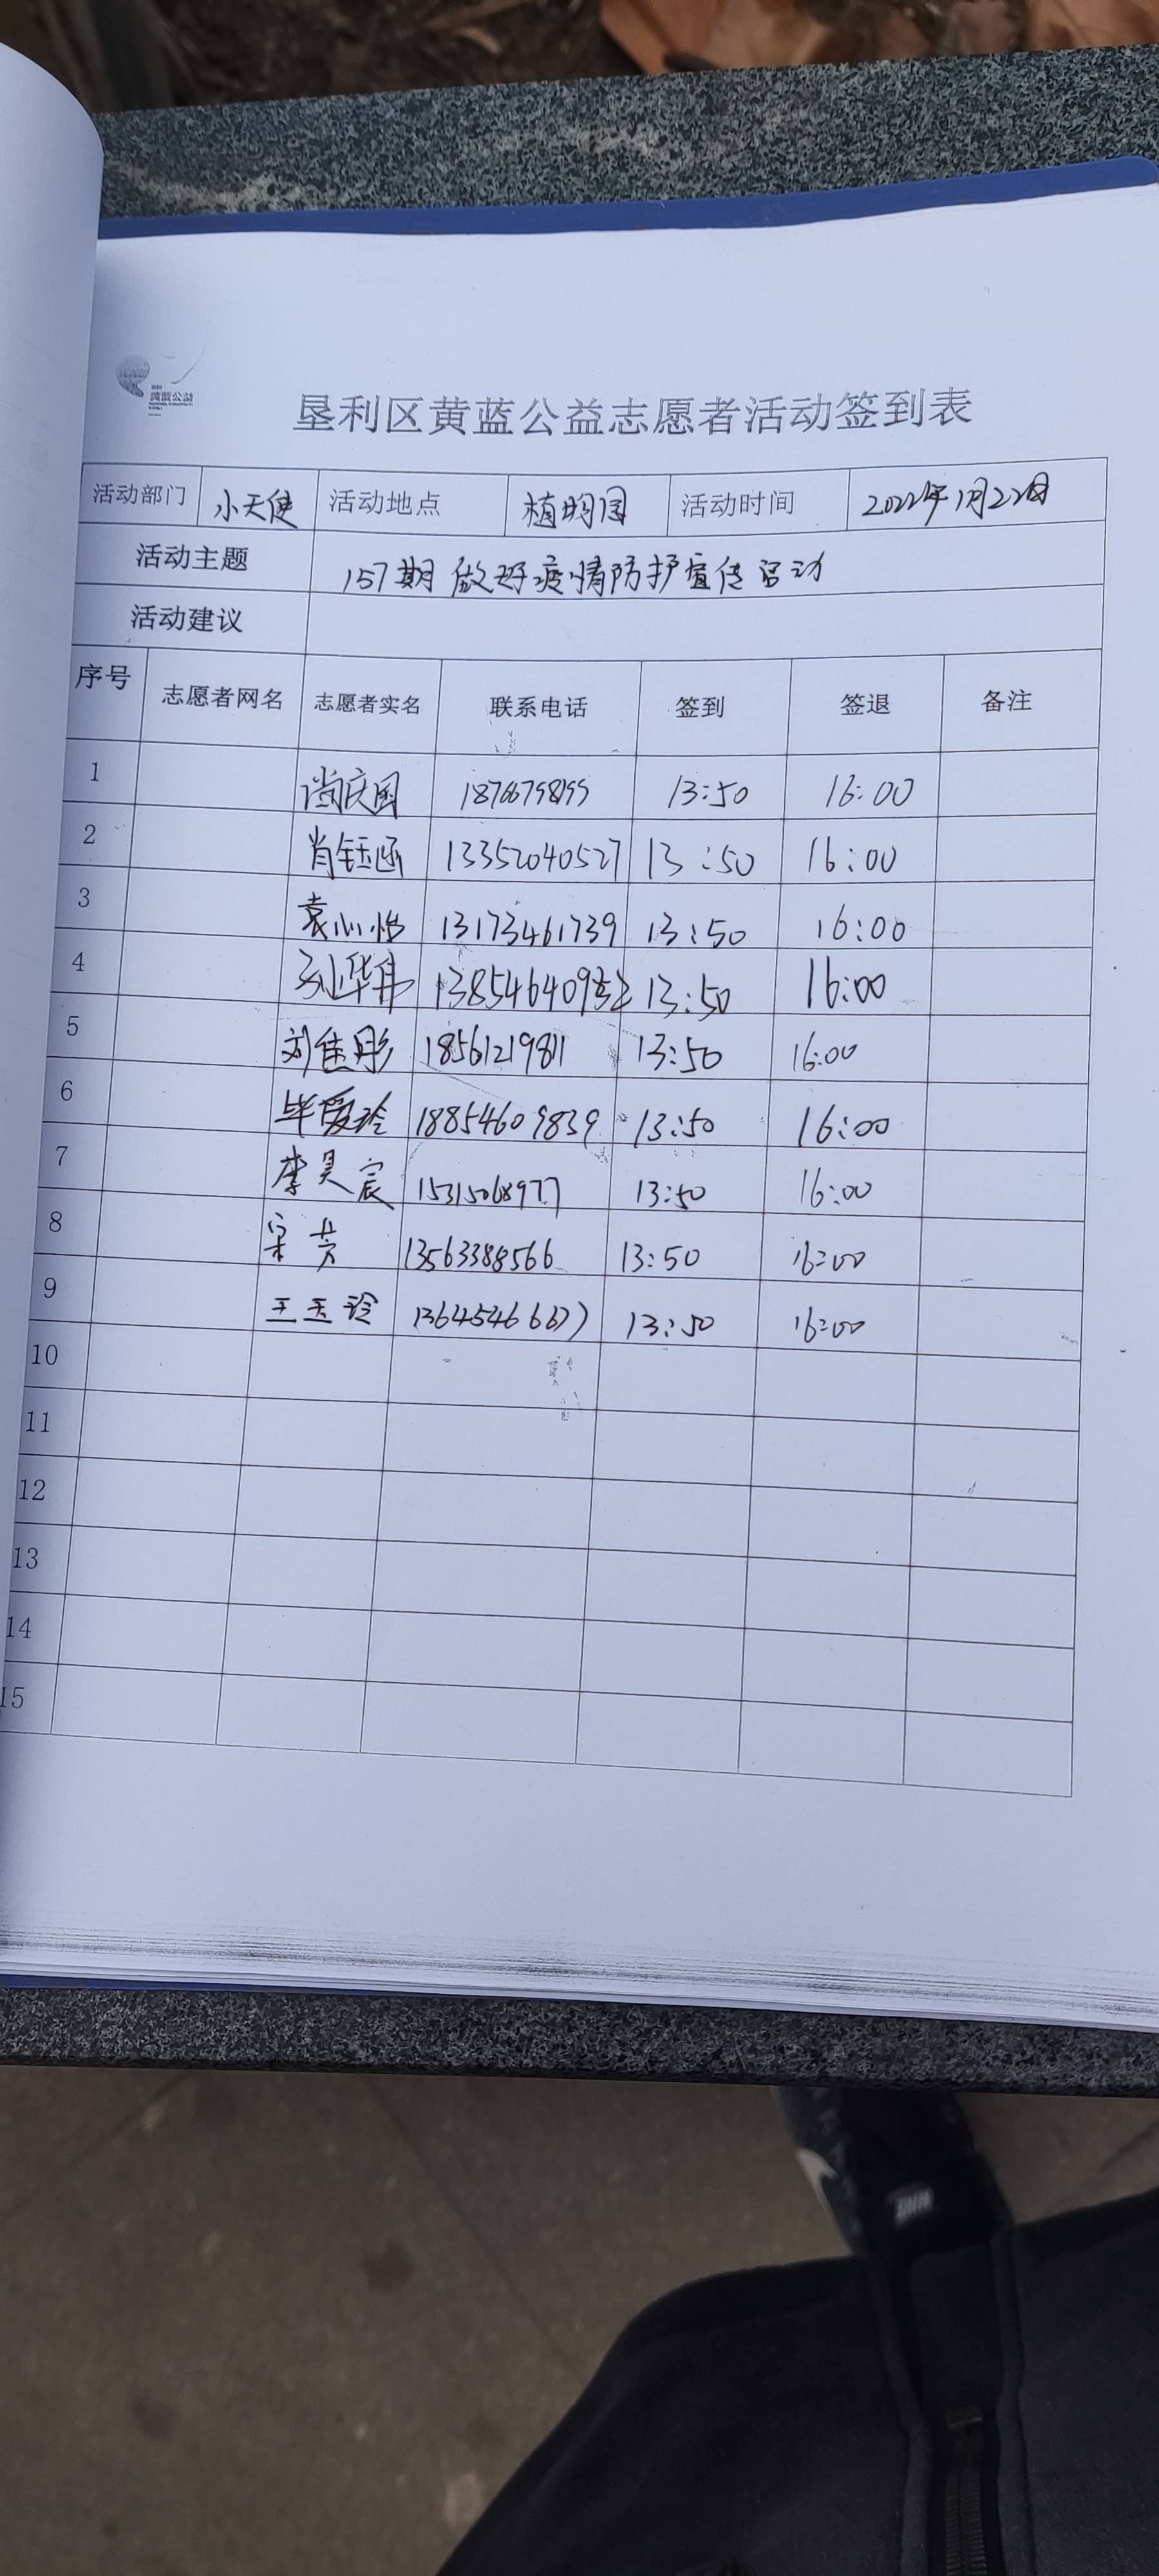 黄蓝公益
垦利区黄蓝公益志愿者活动签到表
活动部门 小天使 活动地点 植物园 活动时间 2022年1月22日
活动主题 157期做好疫情防护宣传活动
活动建议
序号 志愿者网名 志愿者实名 联系电话 签到 签退 备注
1 尚庆国 13:50 16:00
2 肖钰涵 13352040527 13:50 16:00
3 袁心怡 13173461739 13:50 16:00
4 13:50 16:00
5 刘佳彤 18561219811 13:50 16:00
6 毕爱玲 18854609839 13:50 16:00
7 李昊宸 15315068977 13:50 16:00
8 宋芳 13563388566 13:50 16:00
9 王玉玲 13:50 16:00
10
11
12
13
14
15